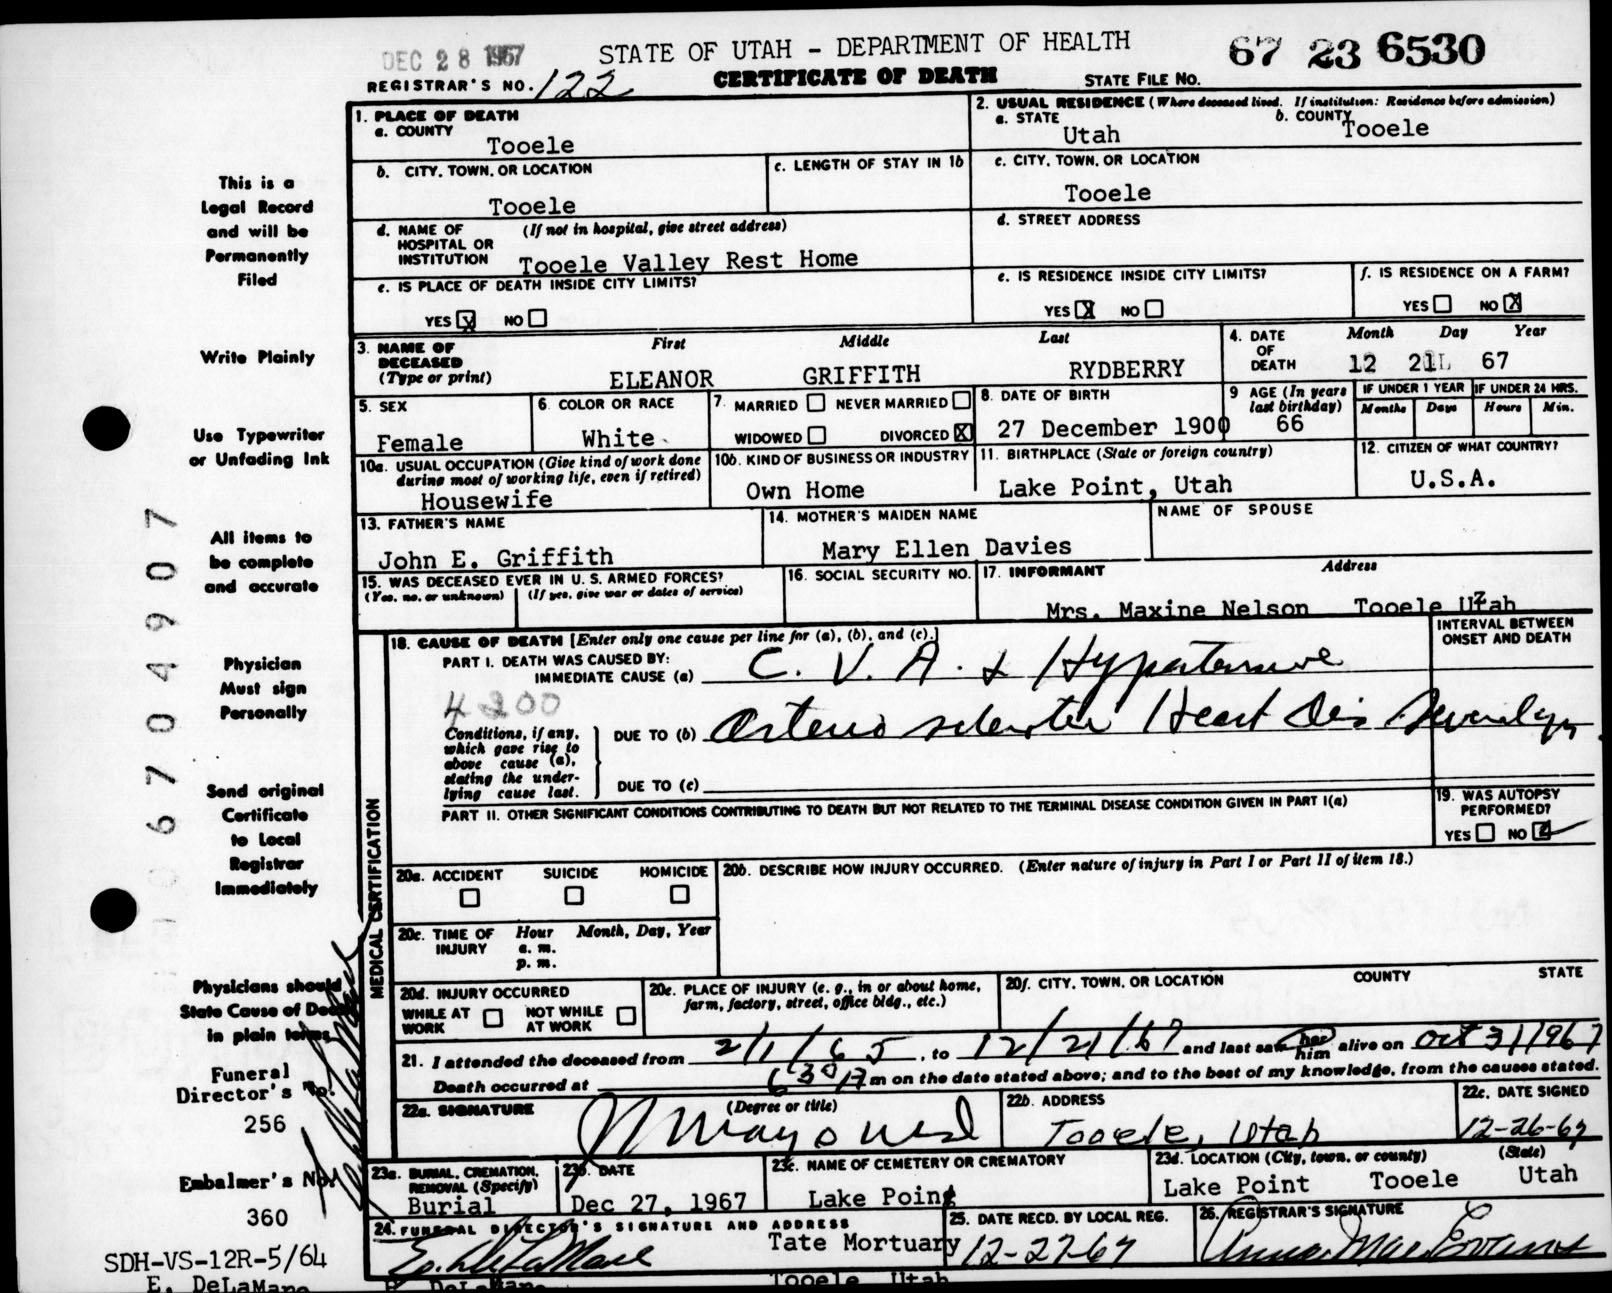 DEC 28 1967
STATE OF UTAH - DEPARTMENT OF HEALTH
67 23 6530
REGISTRAR'S NO. 122
CERTIFICATE OF DEATH
STATE FILE NO.
1. PLACE OF DEATH
a. COUNTY
Tooele
2. USUAL RESIDENCE (Where deceased lived. If institution: Residence before admission)
a. STATE
Utah
b. COUNTY
Tooele
b. CITY, TOWN, OR LOCATION
Tooele
c. LENGTH OF STAY IN 1b
c. CITY, TOWN, OR LOCATION
Tooele
d. NAME OF HOSPITAL OR INSTITUTION
(If not in hospital, give street address)
Tooele Valley Rest Home
d. STREET ADDRESS
e. IS PLACE OF DEATH INSIDE CITY LIMITS?
YES X NO
e. IS RESIDENCE INSIDE CITY LIMITS?
YES X NO
f. IS RESIDENCE ON A FARM?
YES NO X
3. NAME OF DECEASED (Type or print)
First Middle Last
ELEANOR GRIFFITH RYDBERRY
4. DATE OF DEATH
Month Day Year
12 21 67
5. SEX
Female
6. COLOR OR RACE
White
7. MARRIED NEVER MARRIED
WIDOWED DIVORCED X
8. DATE OF BIRTH
27 December 1900
9 AGE (In years last birthday)
66
IF UNDER 1 YEAR
Months Days
IF UNDER 24 HRS.
Hours Min.
10a. USUAL OCCUPATION (Give kind of work done during most of working life, even if retired)
Housewife
10b. KIND OF BUSINESS OR INDUSTRY
Own Home
11. BIRTHPLACE (State or foreign country)
Lake Point, Utah
12. CITIZEN OF WHAT COUNTRY?
U.S.A.
13. FATHER'S NAME
John E. Griffith
14. MOTHER'S MAIDEN NAME
Mary Ellen Davies
NAME OF SPOUSE
15. WAS DECEASED EVER IN U. S. ARMED FORCES?
(Yes, no, or unknown) (If yes, give war or dates of service)
16. SOCIAL SECURITY NO.
17. INFORMANT Address
Mrs. Maxine Nelson Tooele Utah
18. CAUSE OF DEATH [Enter only one cause per line for (a), (b), and (c).]
INTERVAL BETWEEN ONSET AND DEATH
PART I. DEATH WAS CAUSED BY:
IMMEDIATE CAUSE (a) C. V. A. & Hypertensive
4200
Conditions, if any, which gave rise to above cause (a), stating the underlying cause last.
DUE TO (b) Arteriosclerotic Heart Dis
DUE TO (c)
PART II. OTHER SIGNIFICANT CONDITIONS CONTRIBUTING TO DEATH BUT NOT RELATED TO THE TERMINAL DISEASE CONDITION GIVEN IN PART I(a)
19. WAS AUTOPSY PERFORMED?
YES NO
MEDICAL CERTIFICATION
20a. ACCIDENT SUICIDE HOMICIDE
20b. DESCRIBE HOW INJURY OCCURRED. (Enter nature of injury in Part I or Part II of item 18.)
20c. TIME OF INJURY
Hour Month, Day, Year
a. m.
p. m.
20d. INJURY OCCURRED
WHILE AT WORK NOT WHILE AT WORK
20e. PLACE OF INJURY (e. g., in or about home, farm, factory, street, office bldg., etc.)
20f. CITY, TOWN, OR LOCATION COUNTY STATE
21. I attended the deceased from 2/1/65, to 12/21/67 and last saw her him alive on Oct 31 1967
Death occurred at 630 A m on the date stated above; and to the best of my knowledge, from the causes stated.
22a. SIGNATURE (Degree or title)
22b. ADDRESS
Tooele, Utah
22c. DATE SIGNED
12-26-67
23a. BURIAL, CREMATION, REMOVAL (Specify)
Burial
23b. DATE
Dec 27, 1967
23c. NAME OF CEMETERY OR CREMATORY
Lake Point
23d. LOCATION (City, town, or county) (State)
Lake Point Tooele Utah
24. FUNERAL DIRECTOR'S SIGNATURE AND ADDRESS
Tate Mortuary
E. DeLaMare Tooele Utah
25. DATE RECD. BY LOCAL REG.
12-27-67
26. REGISTRAR'S SIGNATURE
Anna Mae Evans
This is a
Legal Record
and will be
Permanently
Filed
Write Plainly
Use Typewriter
or Unfading Ink
All items to
be complete
and accurate
Physician
Must sign
Personally
Send original
Certificate
to Local
Registrar
Immediately
Physicians should
State Cause of Death
in plain terms
Funeral
Director's No.
256
Embalmer's No.
360
SDH-VS-12R-5/64
E. DeLaMare
0 6 7 0 4 9 0 7